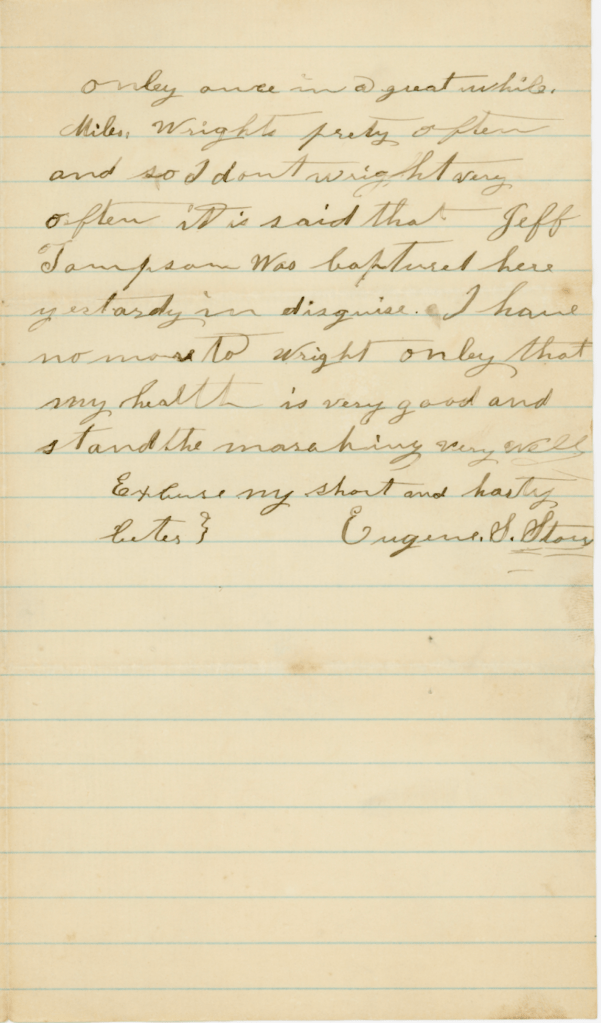 onley once in a great while.
Miles, Wrights prety often
and so I dont wright very
often it is said that Jeff
Tompson Was Captured here
yestardy in disguise. I have
no more to wright onley that
my health is very good and
stand the maraching very well
Excuse my short and hasty
leter} Eugene. S.